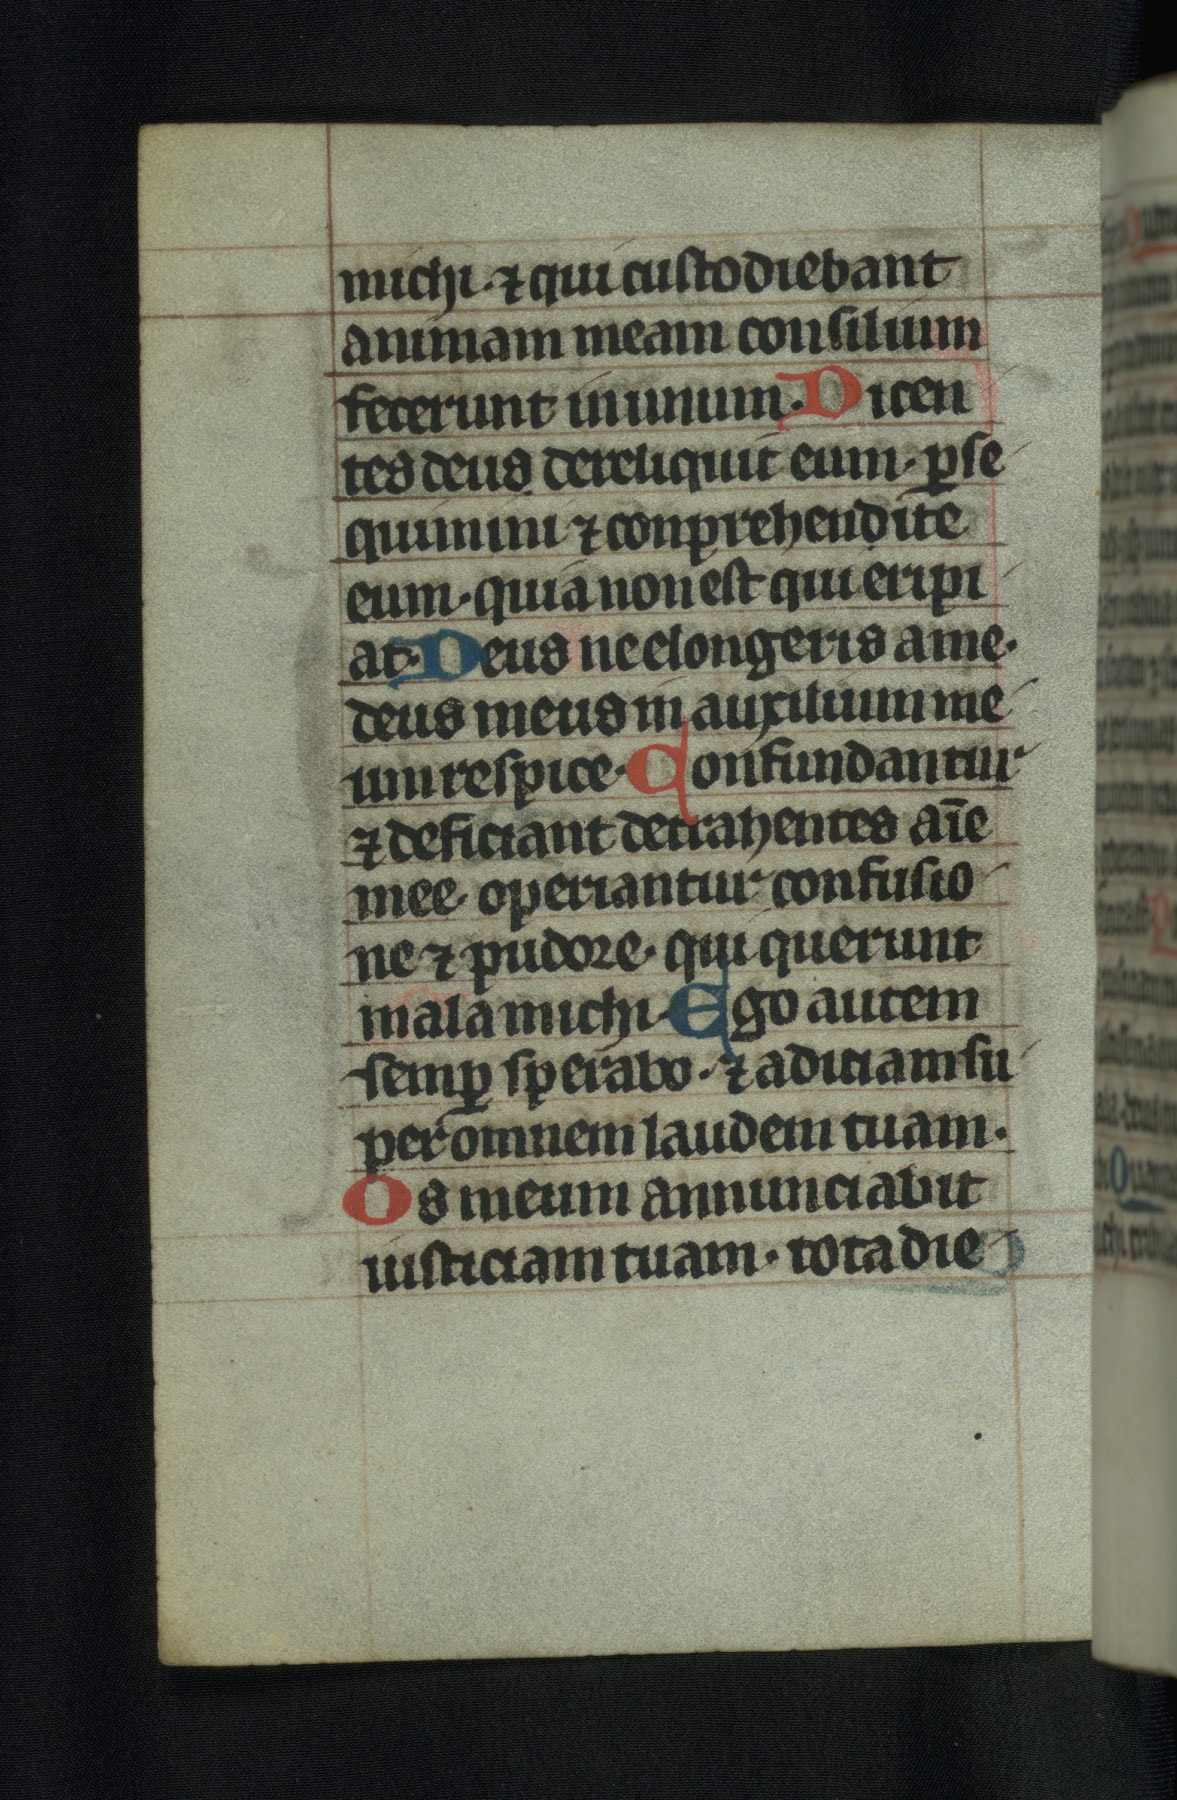 michi · ⁊ qui custodiebant
animam meam consilium
fecerunt in unum · Dicen
tes deus dereliquit eum · ꝑse
quimini ⁊ conprehendite
eum · quia non est qui eripi
at · Deus ne elongeris a me ·
deus meus in auxilium me
um respice · Confundantur
⁊ deficiant detrahentes aīe
mee · operiantur confusio
ne ⁊ pudore · qui querunt
mala michi · Ego autem
semꝑ sperabo · ⁊ adiciam su
per omnem laudem tuam ·
Os meum annunciabit
iusticiam tuam · tota die